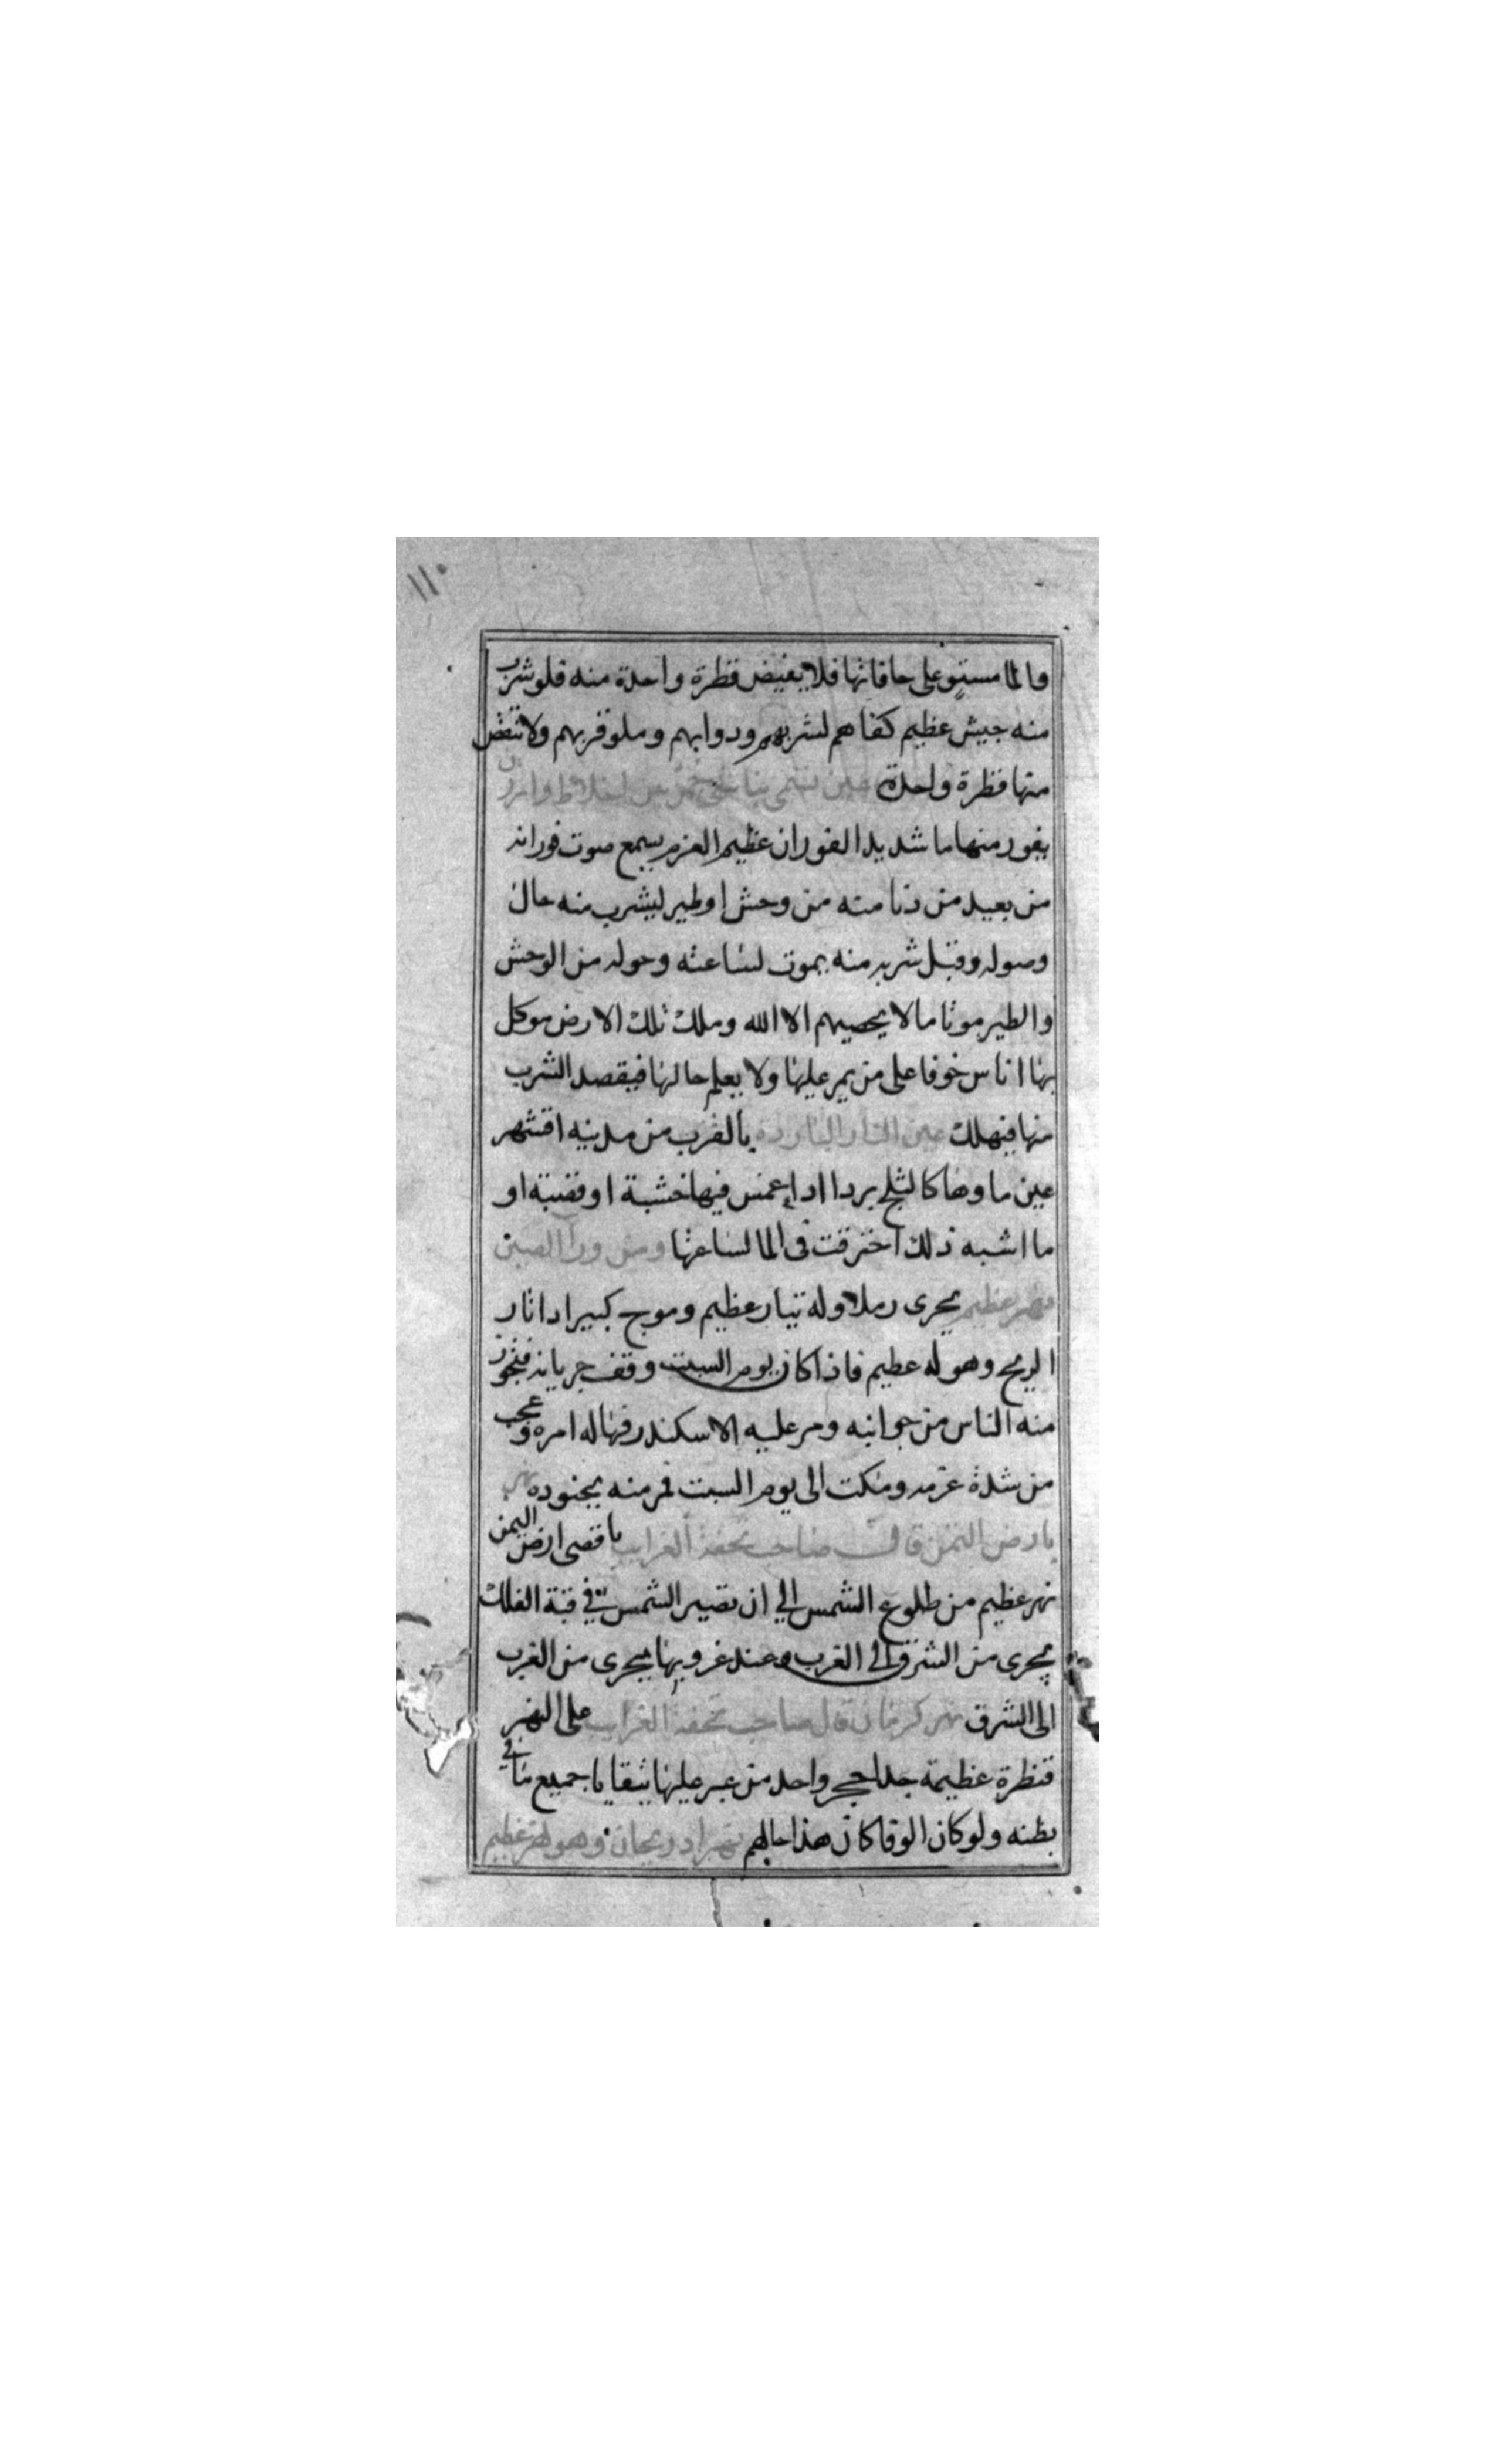 ١١٠
والما مستو على حافاتها فلا يفيض قطرة واحدة منه فلو شرب
منه جيش عظيم كفاهم لشربهم ودوابهم وملو قربهم ولا تنقض
منها قطرة واحدة عين تسمى بين خلاط وارزن
يفور منها ما شديد الفوران عظيم العزم يسمع صوت فورانه
من بعيد من دنا منه من وحش او طير ليشرب منه حال
وصوله وقبل شربه منه يموت لساعته وحوله من الوحش
والطير موتا ما لا يحصيهم الا الله وملك تلك الارض موكل
بها اناس خوفا على من يمر عليها ولا يعلم حالها فيقصد الشرب
منها فيهلك عين النار الباردة بالقرب من مدينه اقشهر
عين ماوها كالثلج بردا ادا اغمس فيها خشبة او قضبة او
ما اشبه ذلك احترقت في الما لساعتها ومن ورآ الصين
نهر عظيم يجرى رملا وله تيار عظيم وموج كبير ادا ثار
الريح وهوله عظيم فاذا كان يوم السبت وقف جريانه فتجوز
منه الناس من جوانبه ومر عليه الاسكندر فهاله امره وعجب
من شدة عزمه ومكت الى يوم السبت فمر منه بجنوده نهر
بارض اليمن قال صاحب تحفة الغرايب باقصى ارض اليمن
نهر عظيم من طلوع الشمس الي ان تصير الشمس في قبة الفلك
يجرى من الشرق الى الغرب وعند غروبها يجرى من الغرب
الى الشرق نهر كرمان قال صاحب تحفة الغرايب على النهر
قنطرة عظيمة جدا حجر واحد من عبر عليها يتقايا جميع ما في
بطنه ولو كان الوفا كان هذا حالهم نهر ادربيجان وهو نهر عظيم